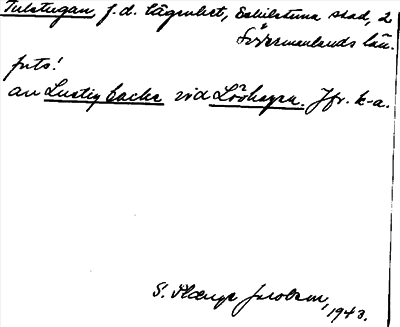 Tulstugan, f.d. lägenhet, Eskilstuna stad, 2
Södermanlands län.
forts!
av Lustig backe vid Lövhagen. Jfr. k-a.
S. Jacobson, 1943.